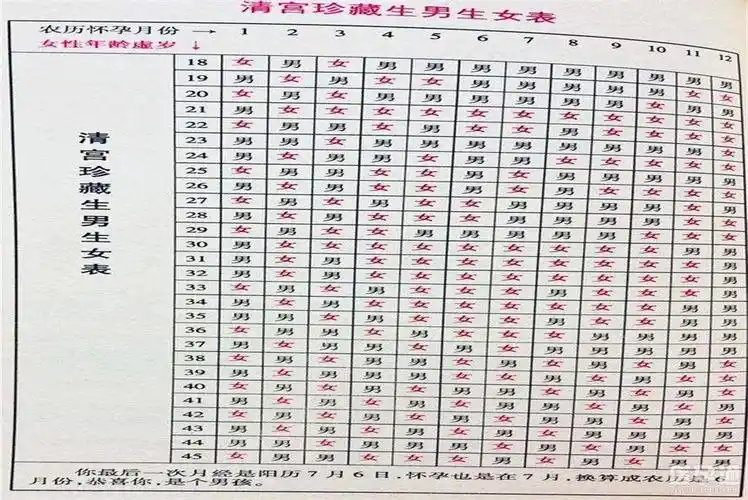 清宫珍藏生男生女表
农历怀孕月份 → 1 2 3 4 5 6 7 8 9 10 11 12
女性年龄虚岁 ↓
清宫珍藏生男生女表
18 女 男 女 男 男 男 男 男 男 男 男 男
19 男 女 男 女 女 男 男 男 男 男 女 女
20 女 男 女 男 男 男 男 男 男 女 男 男
21 男 女 女 女 女 女 女 女 女 女 女 女
22 女 男 男 女 男 女 女 男 女 女 女 女
23 男 男 女 男 男 女 男 女 男 男 男 女
24 男 女 男 男 女 男 男 女 女 女 女 女
25 女 男 男 女 女 男 女 男 男 男 男 男
26 男 女 男 女 女 男 女 男 女 女 女 女
27 女 男 女 男 女 女 男 男 男 男 女 男
28 男 女 男 女 女 女 男 男 男 男 女 女
29 女 男 女 女 男 男 男 男 男 女 女 女
30 男 女 女 女 女 女 女 女 女 女 男 男
31 男 女 男 女 女 女 女 女 女 女 女 男
32 男 女 男 女 女 女 女 女 女 女 女 男
33 女 男 女 男 女 女 女 男 女 女 女 男
34 男 女 男 女 女 女 女 女 女 女 男 男
35 男 男 女 男 女 女 女 男 女 女 男 男
36 女 男 男 女 男 女 女 女 男 男 男 男
37 男 女 男 男 女 男 女 男 女 男 女 男
38 女 男 女 男 男 女 男 女 男 女 男 女
39 男 女 男 男 男 女 女 男 女 男 女 女
40 女 男 女 男 女 男 男 女 男 女 男 女
41 男 女 男 女 男 女 男 男 女 男 女 男
42 女 男 女 男 女 男 女 男 男 女 男 女
43 男 女 男 女 男 女 男 女 男 男 男 男
44 男 男 女 男 男 男 女 男 女 男 女 女
45 女 男 男 女 女 女 男 女 男 女 男 男
你最后一次月经是阳历7月6日，怀孕也是在7月，换算成农历是6
月份，恭喜你，是个男孩。